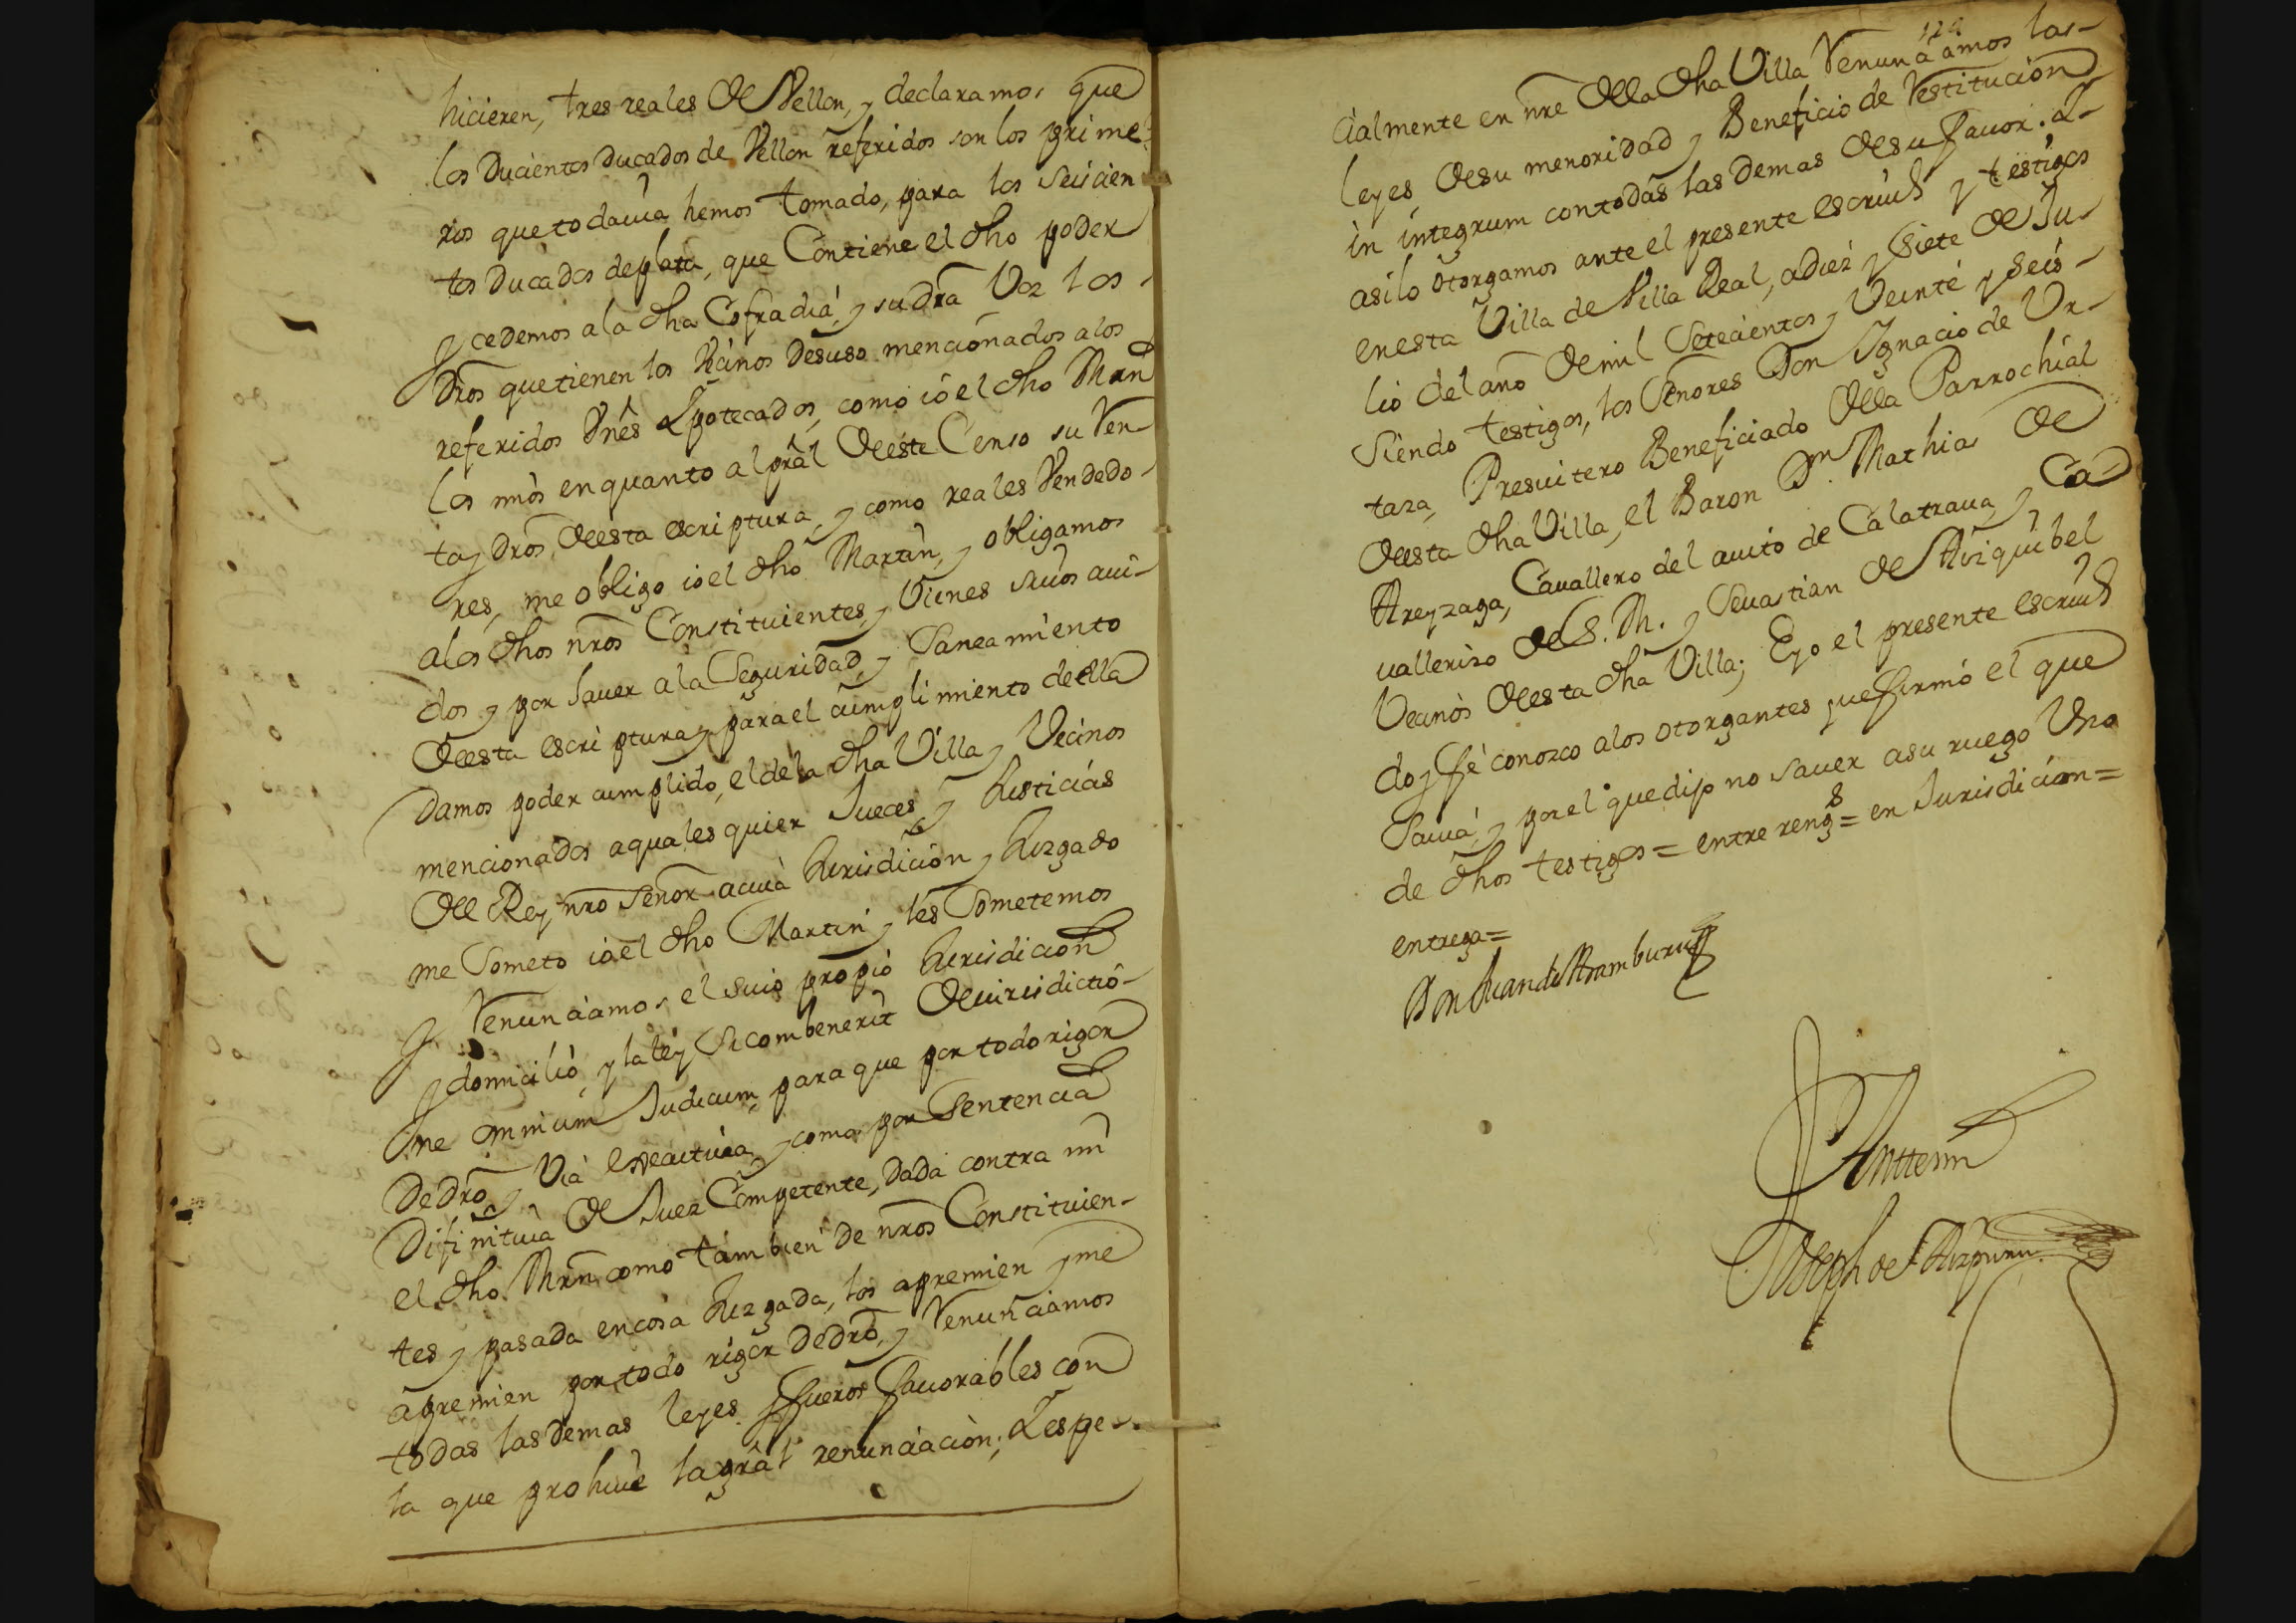 hicieren, tres reales de Vellon, y declaramos que
los Ducientos Ducados de Vellon referidos son los prime-
ros que todauia hemos tomado, para los seiscien
tos Ducados de plata, que Contiene el dho poder
y cedemos a la dha Cofradia, y su dra Voz los
Dros que tienen los Vecinos Desuso mencionados a los
referidos Vnes Ypotecados, como io el dho Mrn
los mios en quanto al pral de este Censo su Ven-
ta y Dros, de esta escriptura, y como reales Vendedo-
res, me obligo io el dho Martin, y obligamos
a los dhos nros Constituientes, y Vienes suios aui-
dos y por hauer a la Seguridad, y Saneamiento
de esta escriptura y para el cumplimiento de ella
Damos poder cumplido, el de la dha Villa y Vecinos
mencionados a quales quier Jueces, y Justicias
del Rey nro Señor a cuia Jurisdicion y Juzgado
me Someto io el dho Martin y les Sometemos
y Renunciamos el suio propio Jurisdicion
y domicilio, y la ley Si combenerit de iurisdictio-
ne omnium Judicum, para que por todo rigor
De dro, y Via executiua, y como por Sentencia
Difinitiua de Juez Competente, Dada contra mi
el dho Mrn como tambien de nros Constituien-
tes y pasada en cosa Juzgada, los apremien y me
apremien por todo rigor De dro, y Renunciamos
todas las Demas leyes y fueros fauorables con
la que prohiue la gral renunciacion; Y espe-
124
cialmente en nre de la dha Villa Renunciamos las
leyes, de su menoridad y Beneficio de Restitucion
in integrum con todas las Demas de su fauor. Y
asi lo otorgamos ante el presente escriuo y testigos
en esta Villa de Villa Real, a diez y siete de Ju-
lio del año de mil Setecientos y Veinte y seis
Siendo testigos, los Señores Don Ignacio de Vr-
taza, Presuitero Beneficiado de la Parrochial
de esta dha Villa, el Baron Dn Mathias de
Areyzaga, Cauallero del auito de Calatraua y Ca-
uallerizo de S. M. y Seuastian de Aizquibel
Vecinos de esta dha Villa; E yo el presente escriuo
doy fe conozco a los otorgantes y ue firmó el que
Sauia, y por el que dijo no sauer a su ruego Vno
de dhos testigos = entre rengs = en Jurisdicion =
entrega =
Don Juan de Aramburu
Antte mi
Joseph de Aizpuru